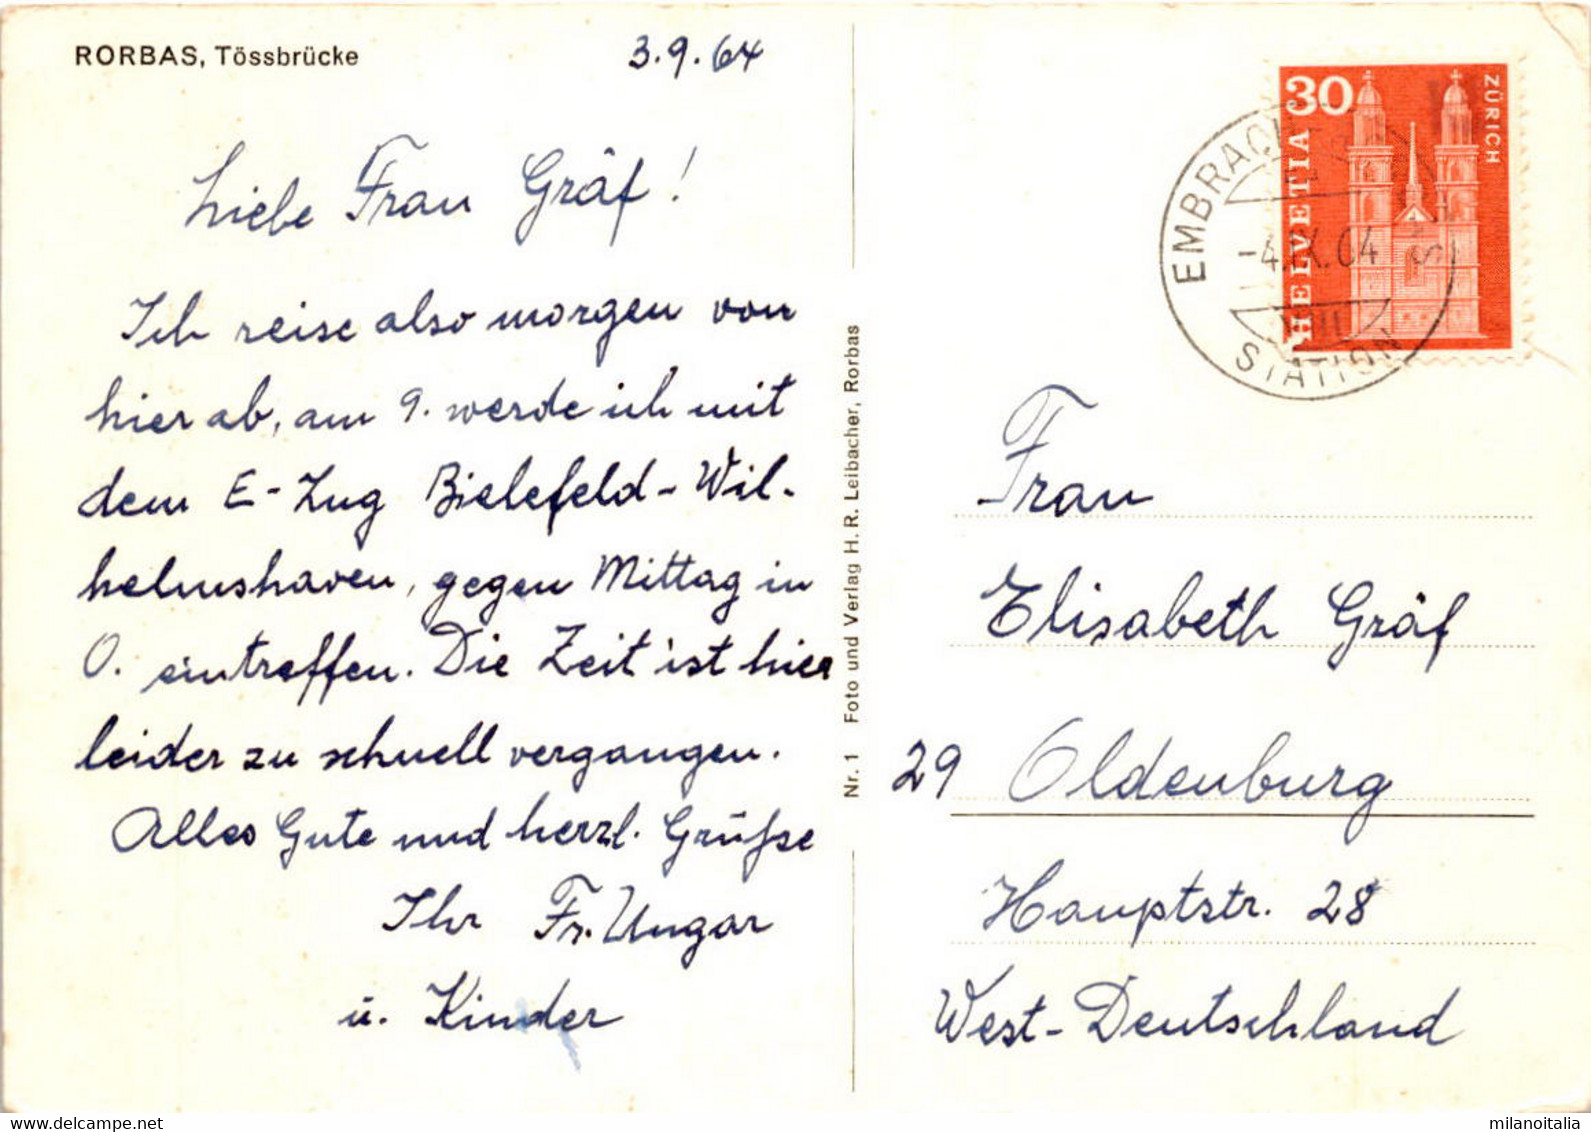 RORBAS, Tössbrücke
3.9.64
Liebe Frau Gräf!
Ich reise also morgen von
hier ab, am 9. werde ich mit
dem E-Zug Bielefeld-Wil-
helmshaven, gegen Mittag in
O. eintreffen. Die Zeit ist hier
leider zu schnell vergangen.
Alles Gute und herzl. Grüße
Ihr Fr. Ungar
u. Kinder
Nr. 1 Foto und Verlag H. R. Leibacher, Rorbas
30
HELVETIA
ZÜRICH
EMBRACH
-4.IX.64
STATION
Frau
Elisabeth Gräf
29 Oldenburg
Hauptstr. 28
West-Deutschland
www.delcampe.net
milanoitalia